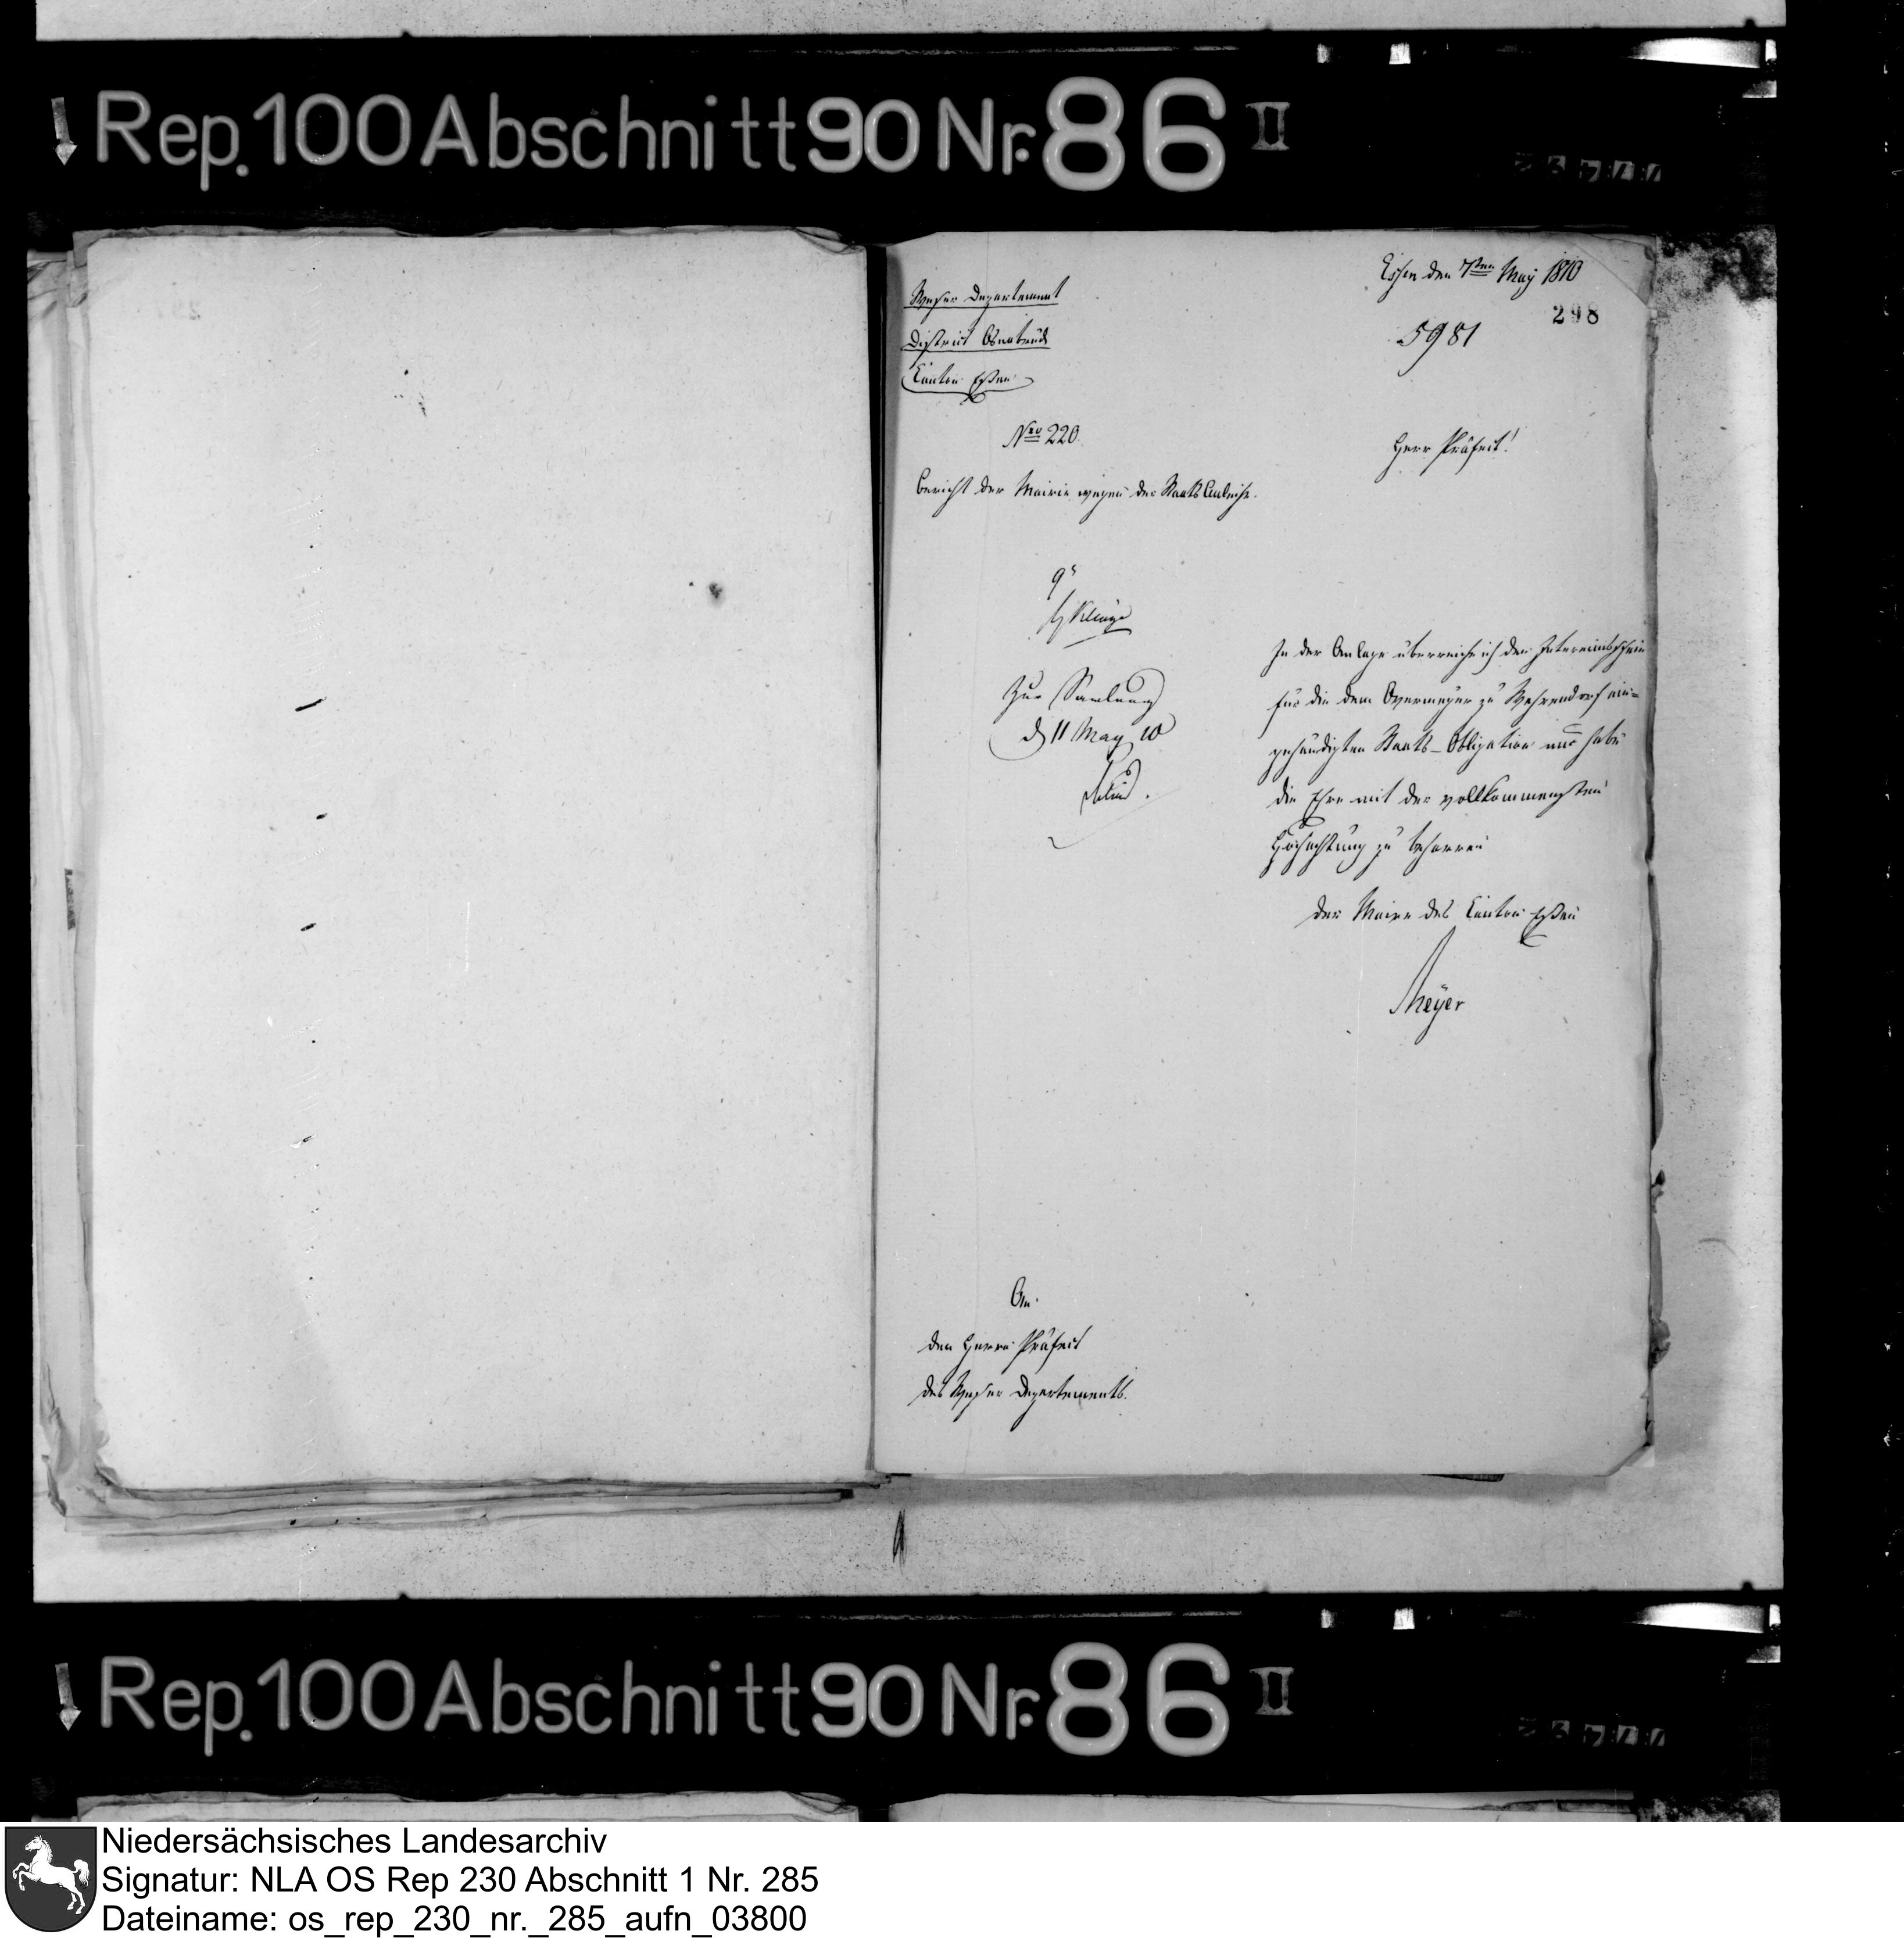 Rep. 100 Abschnitt 90 Nr. 86 II
Weser Departement
District Osnabrück
Canton Essen
Essen den 7ten May 1810
298
5981
Nro 220.
Herr Präfect!
Bericht der Mairie wegen der Staats Anleihe.
Zur Samlung
d 11 May 10
In der Anlage überreiche ich den Interimsschein
für die dem Overmeyer zu Wehrendorf ein-
gehändigten Staats-Obligation und habe
die Ehre mit der vollkommensten
Hochachtung zu beharren
Der Maire des Canton Essen
Meyer
An
den Herrn Präfect
des Weser Departements.
Rep. 100 Abschnitt 90 Nr. 86 II
Niedersächsisches Landesarchiv
Signatur: NLA OS Rep 230 Abschnitt 1 Nr. 285
Dateiname: os_rep_230_nr._285_aufn_03800